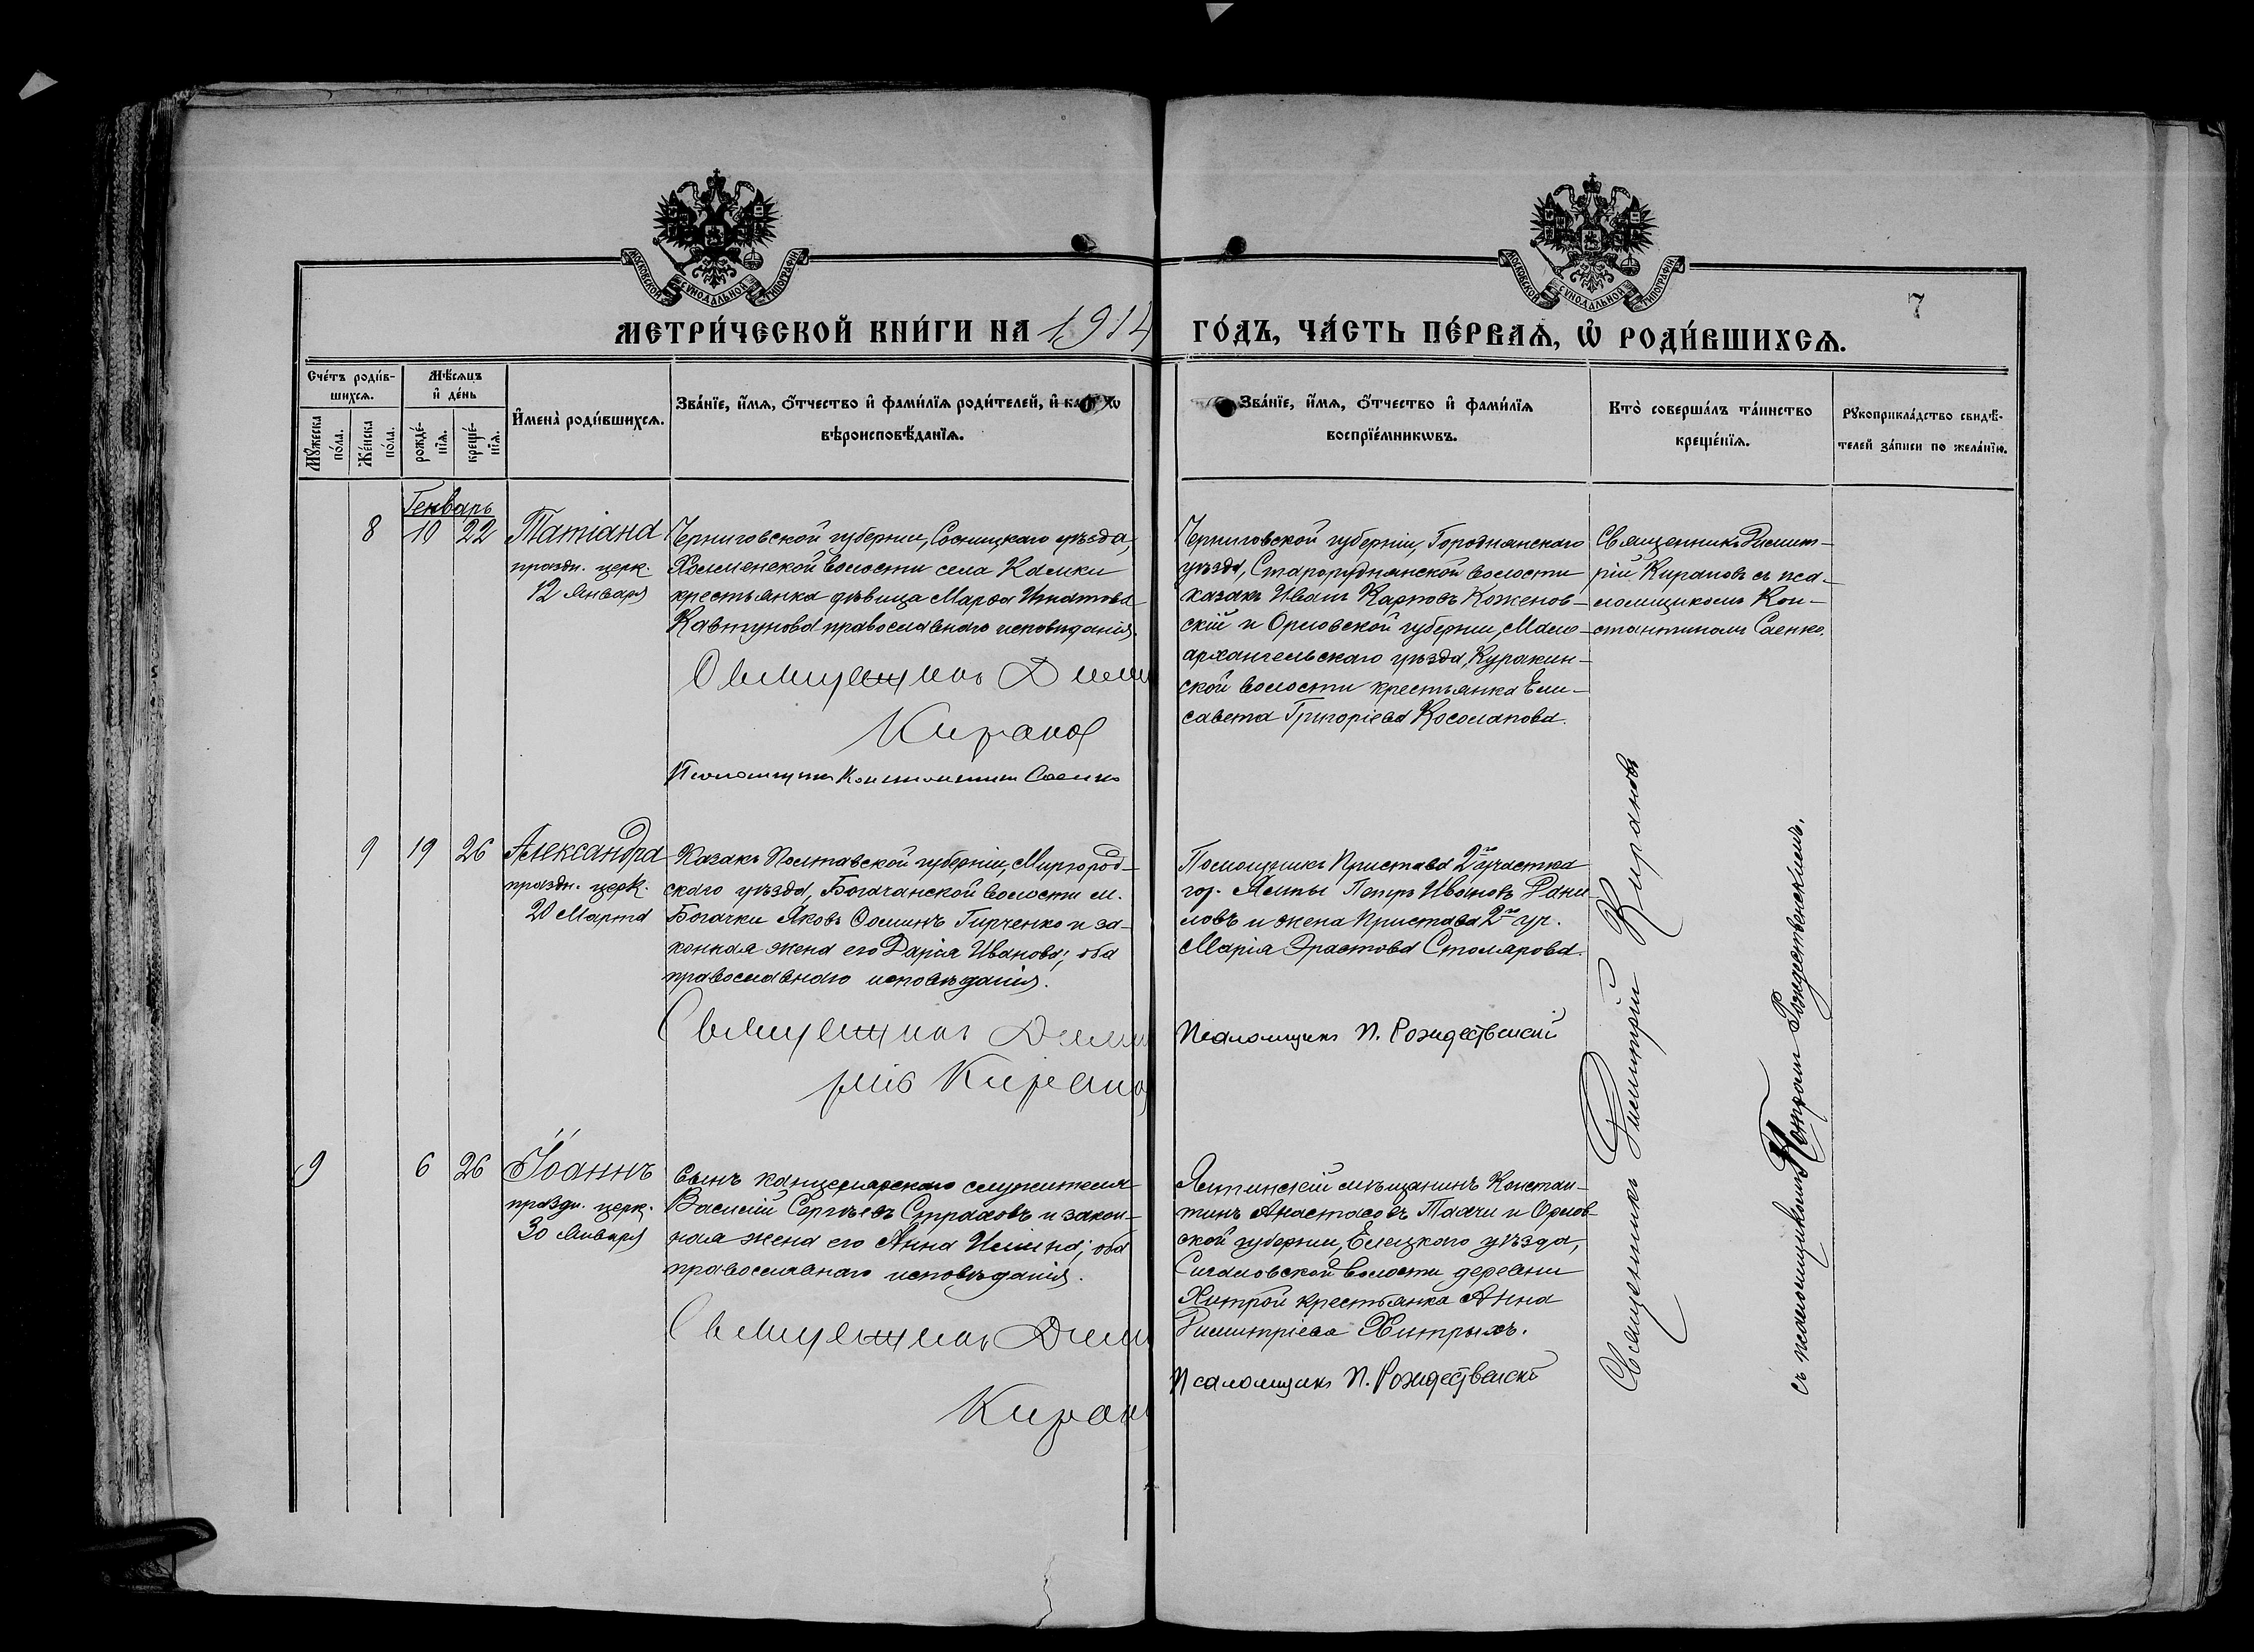 МОСКОВСКОЙ СѴНОДАЛЬНОЙ ТИПОГРАФІИ
МОСКОВСКОЙ СѴНОДАЛЬНОЙ ТИПОГРАФІИ
7
МЕТРИ́ЧЕСКОЙ КНИ́ГИ НА 1914 ГО́ДЪ, ЧА́СТЬ ПЕ́РВАѦ, Ѡ҆ РОДИ́ВШИХСѦ.
Сче́тъ роди́в-
шихсѧ.
Мꙋ́жеска по́ла.
Же́нска по́ла.
Мѣ́сѧцъ
и҆ де́нь
рожде́-
нїѧ.
креще́-
нїѧ.
И҆мена̀ роди́вшихсѧ.
Зва́нїе, и҆́мѧ, ѻ҆́тчество и҆ фами́лїѧ роди́телей, и҆
вѣроисповѣ́данїѧ.
Зва́нїе, и҆́мѧ, ѻ҆́тчество и҆ фами́лїѧ
воспрїе́мникѡвъ.
Кто̀ соверша́лъ та́инство
креще́нїѧ.
Рꙋкоприкла́дство свидѣ́-
телей за́писи по жела́нїю.
Генварь
8
10
22
Татіана
праздн. церк.
12 Января
Черниговской губерніи, Сосницкаго уѣзда,
Холменской волости села Камки
крестьянка дѣвица Марѳа Игнатова
Кавтунова православнаго исповѣданія.
Священникъ Дими
Киранов
Псаломщикъ Константинъ Саенко
Черниговской губерніи, Городнянскаго
уѣзда, Старорудннской волости
казакъ Иванъ Карповъ Коженов-
скій и Орловской губерніи, Мало-
архангельскаго уѣзда, Куракин-
ской волости крестьянка Ели-
савета Григоріева Косолапова.
Священникъ Димит-
рій Кирановъ съ пса-
ломщикомъ Кон-
стантиномъ Саенко.
9
19
26
Александра
праздн. церк.
20 Марта
Казакъ Полтавской губерніи, Миргород-
скаго уѣзда, Богачанской волости м.
Богачки Яковъ Ѳоминъ Гирченко и за-
конная жена его Дарія Иванова; оба
православнаго исповѣданія.
Священникъ Дими
рій Кирано
Помощникъ Пристава 2го участка
гор. Ялты Петръ Ивановъ Дани-
ловъ и жена Пристава 2го уч.
Марія Эрастова Столярова.
Псаломщикъ П. Рождественскій
9
6
26
Іоаннъ
праздн. церк.
30 Января
Сынъ канцелярскаго служителя
Василій Сергѣевъ Страховъ и закон-
ная жена его Анна Ильина; оба
православнаго исповѣданія.
Священникъ Дими
Киран
Ялтинскій мѣщанинъ Констан-
тинъ Анастасовъ Тахчи и Орлов-
ской губерніи, Елецкаго уѣзда,
волости деревни
Хитрой крестьянка Анна
Димитріева Хитрыхъ.
Псаломщикъ П. Рождественскій
Священникъ Димитрій Кирановъ
съ псаломщикомъ Петромъ Рождественскимъ.